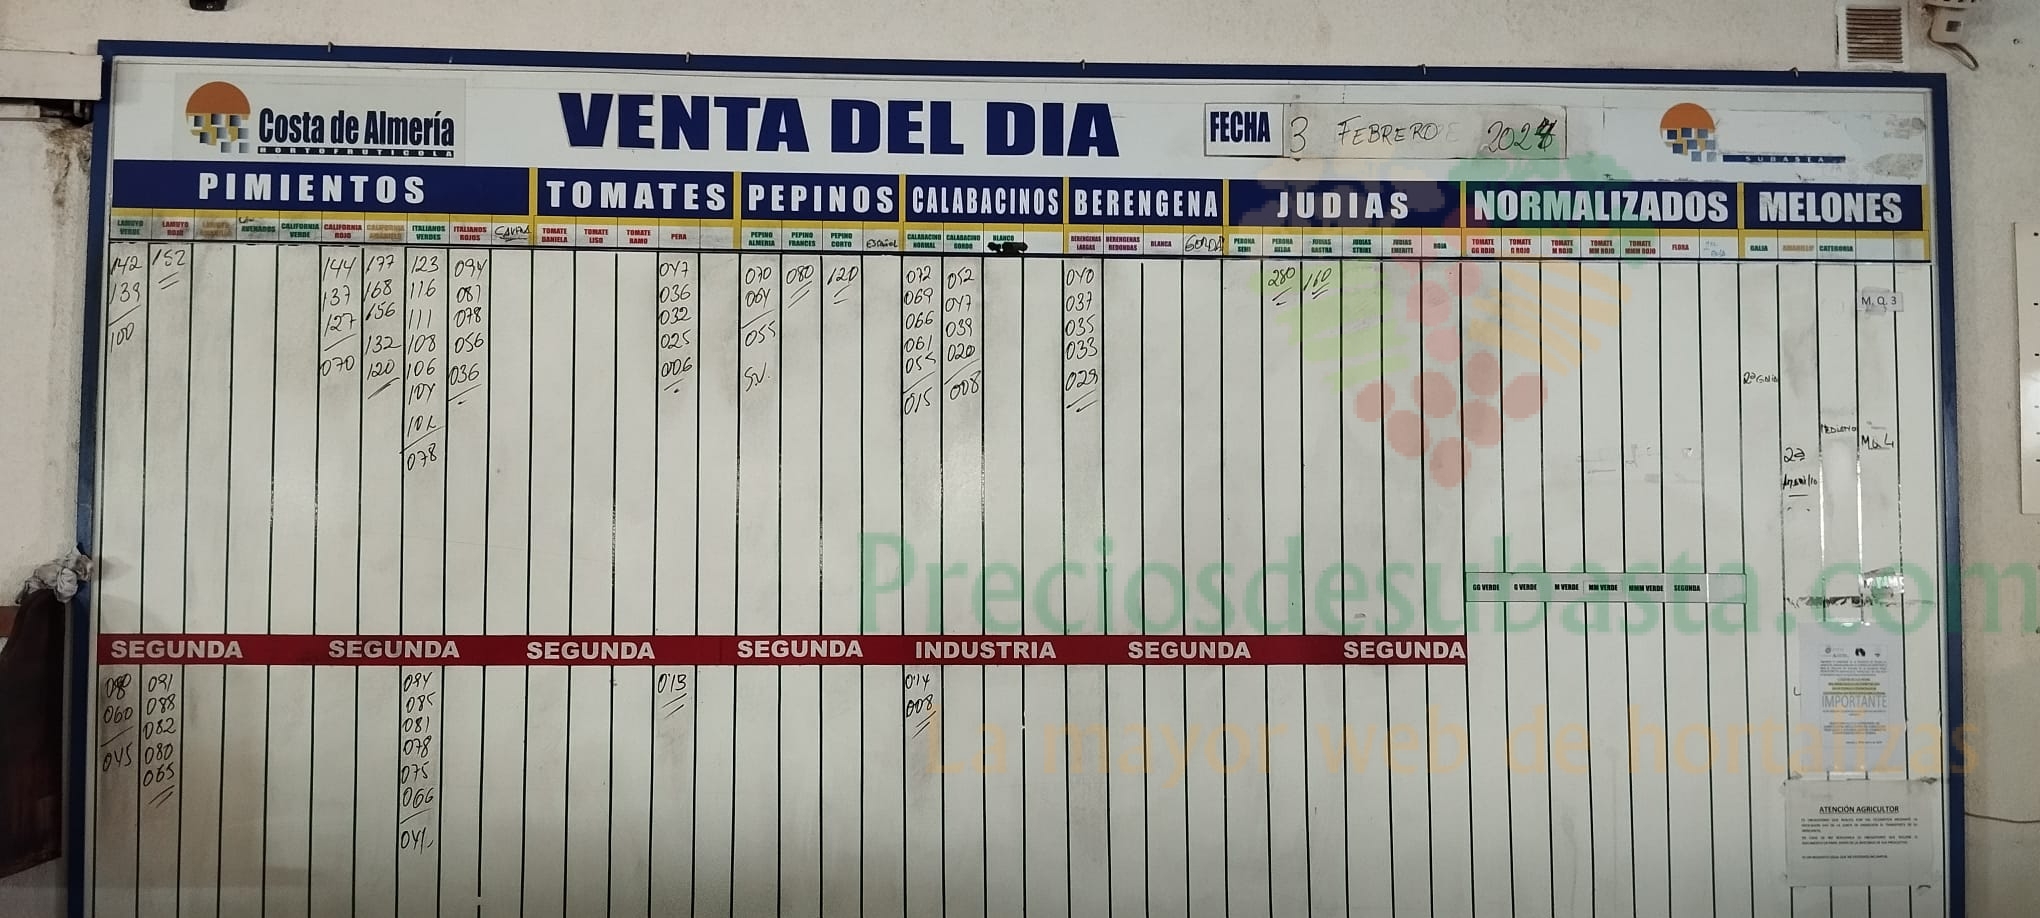 Costa de Almería
HORTOFRUTICOLA
VENTA DEL DIA
FECHA 3 FEBRERO 2024
SUBASTA
PIMIENTOS TOMATES PEPINOS CALABACINOS BERENGENA JUDIAS NORMALIZADOS MELONES
LAMUYO VERDE LAMUYO ROJO CALIFORNIA VERDE CALIFORNIA ROJO CALIFORNIA AMARILLO ITALIANOS VERDES ITALIANOS ROJOS TOMATE DANIELA TOMATE LISO TOMATE RAMO PERA PEPINO ALMERIA PEPINO FRANCES PEPINO CORTO ESPAÑOL CALABACINO NORMAL CALABACINO GORDO BLANCO BERENGENAS LARGAS BERENGENAS REDONDAS BLANCA GORDA PERONA SEMI PERONA HELDA JUDIAS RASTRA JUDIAS STRIKE JUDIAS EMERITE ROJA TOMATE GG ROJO TOMATE G ROJO TOMATE M ROJO TOMATE MM ROJO TOMATE MMM ROJO FLORA GALIA AMARILLO CATEGORIA
142 152 144 177 123 094 047 070 080 120 072 052 040 280 160
139 137 168 116 087 036 064 069 047 037 M.Q.3
100 127 156 111 078 032 055 066 039 035
070 132 108 056 025 S.V. 061 020 033
120 106 036 006 055 008 029
104 015
102
078
2ª GALIA
MEDIANO
M.Q.4
2ª
Amarillo
GG VERDE G VERDE M VERDE MM VERDE MMM VERDE SEGUNDA
Preciosdesubasta.com
SEGUNDA SEGUNDA SEGUNDA SEGUNDA INDUSTRIA SEGUNDA SEGUNDA
080 091 094 013 014
060 088 085 008
045 082 081
080 078
065 075
066
041
IMPORTANTE
La mayor web de hortalizas
ATENCIÓN AGRICULTOR